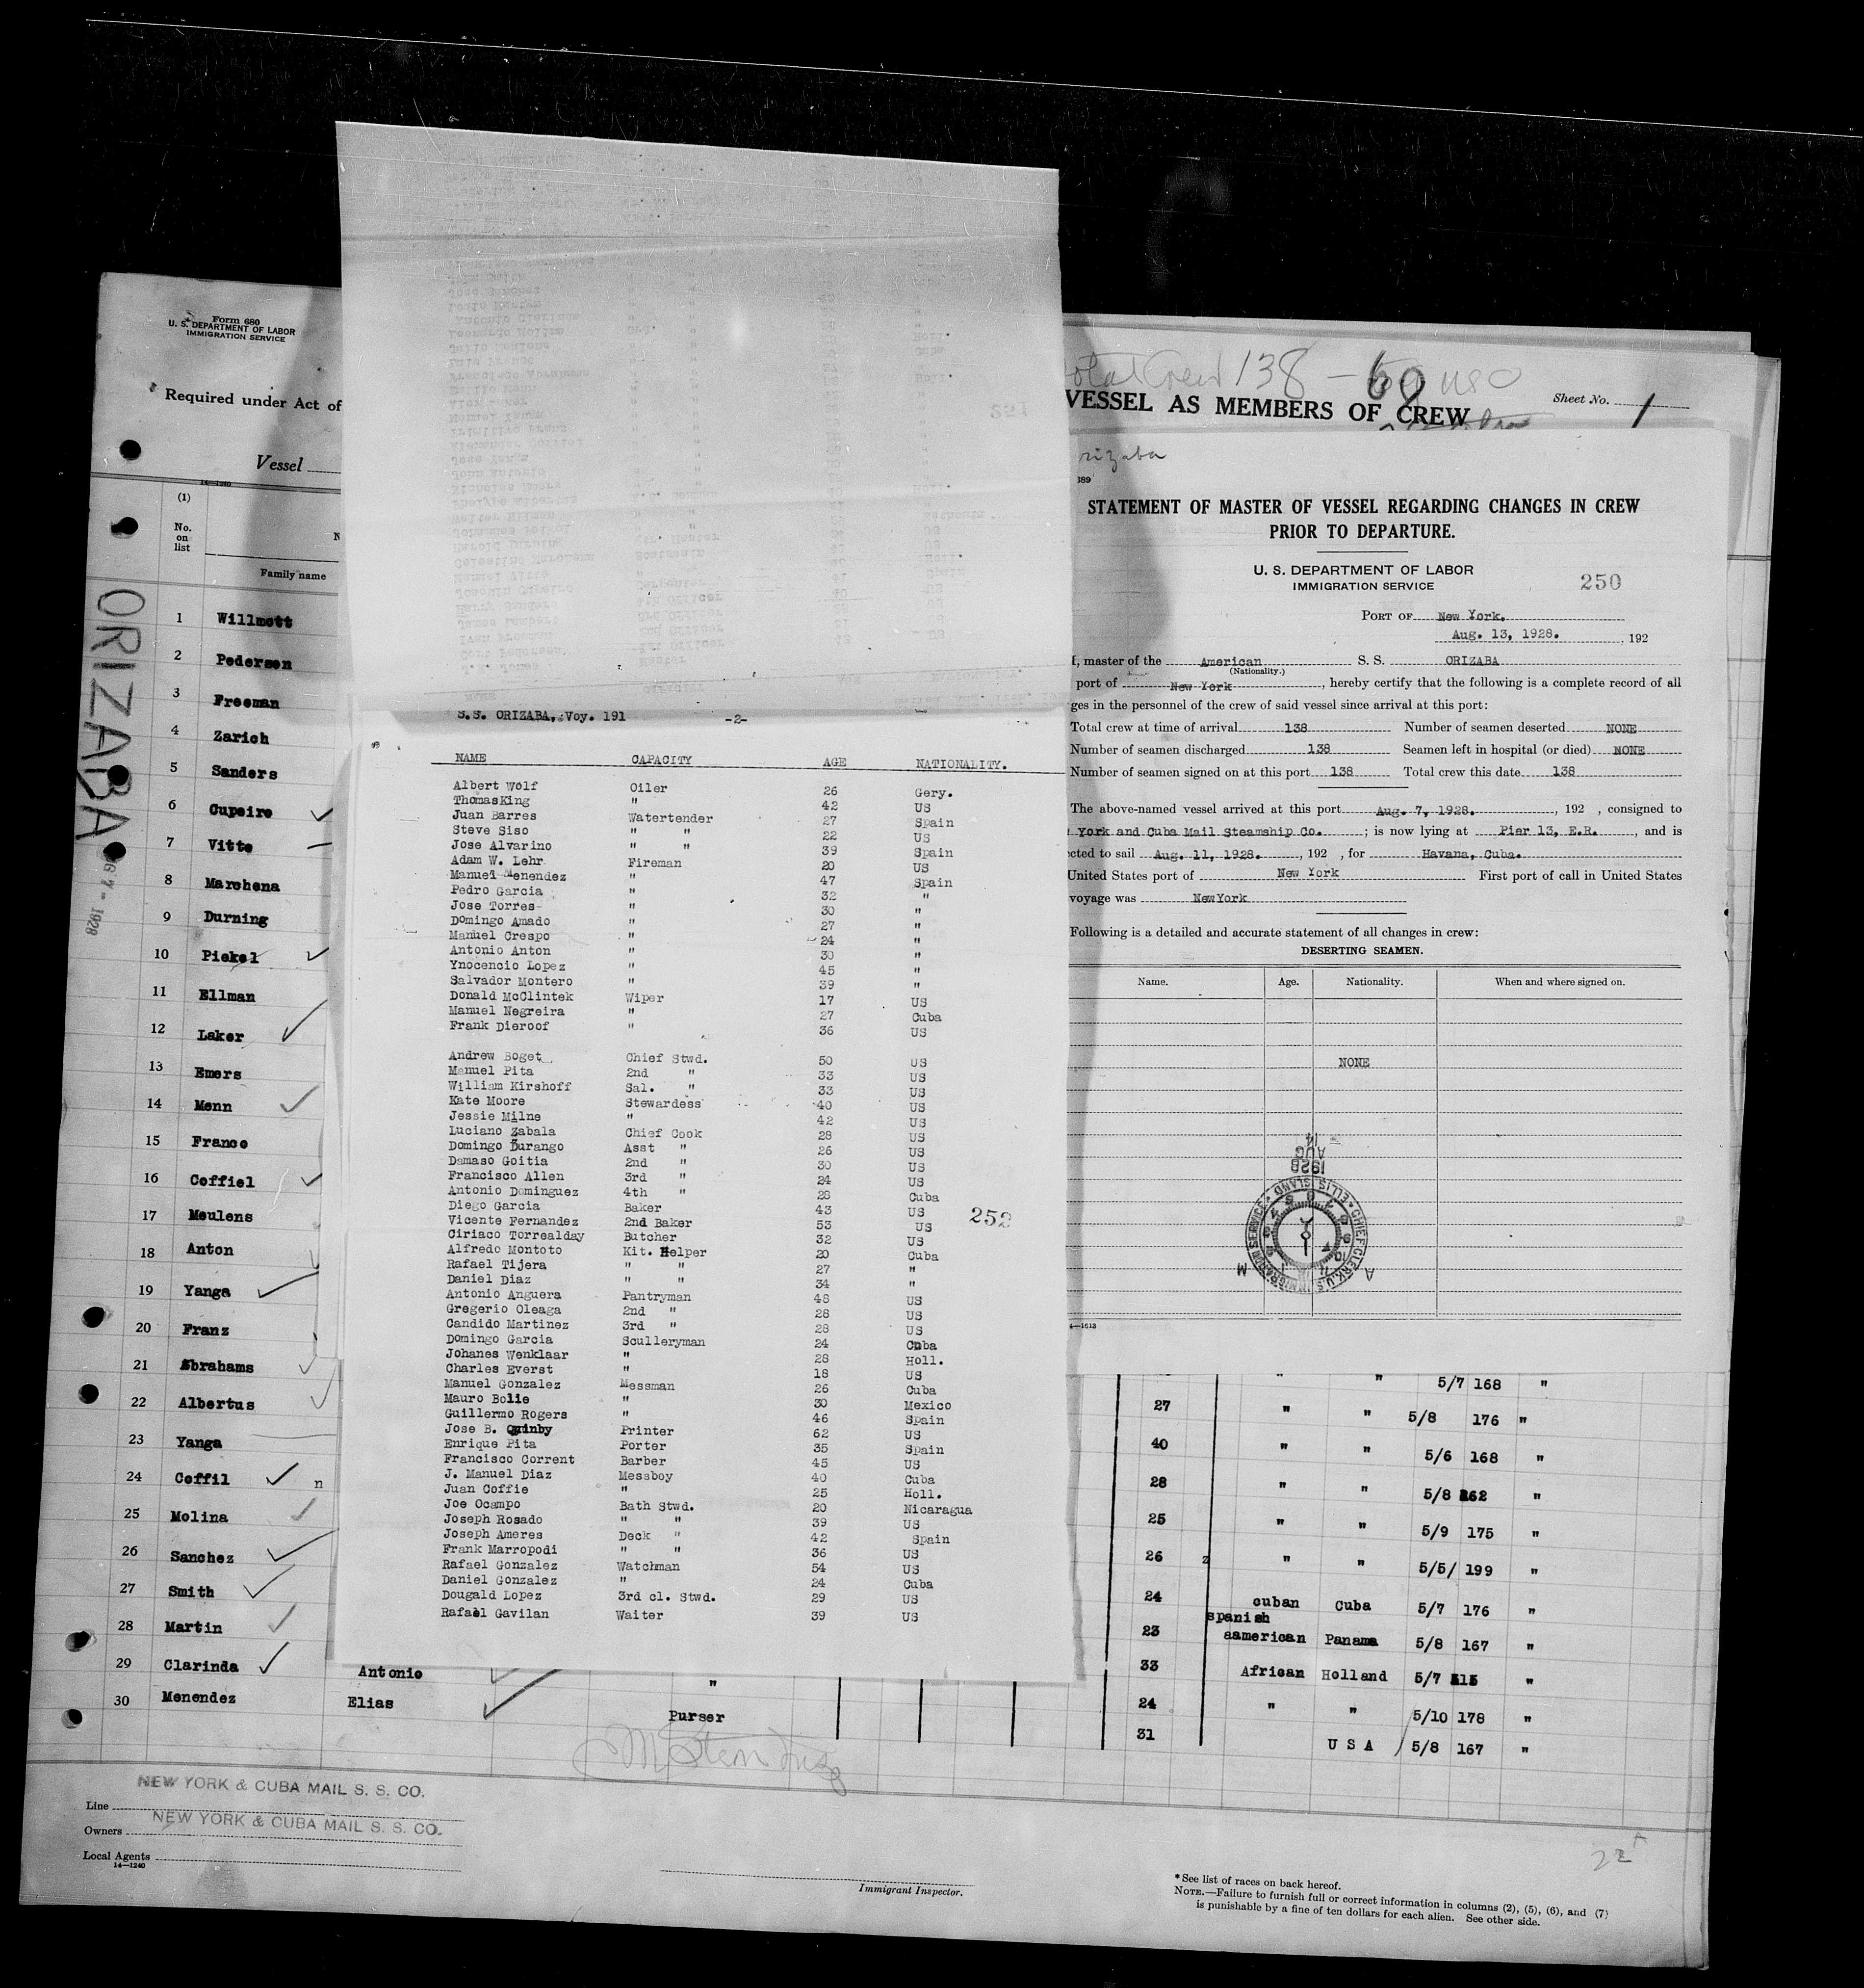 Form 680
U. S. DEPARTMENT OF LABOR
IMMIGRATION SERVICE
Required under Act of
Vessel
14—1240
(1)
No.
on
list
Family name
1 Willmott
2 Pedersen
3 Freeman
4 Zarich
5 Sanders
6 Cupeiro
7 Vitte
8 Marchena
9 Durning
10 Piekel
11 Ellman
12 Laker
13 Emers
14 Menn
15 France
16 Coffiel
17 Meulens
18 Anton
19 Yanga
20 Franz
21 Abrahams
22 Albertus
23 Yanga
24 Coffil n
25 Molina
26 Sanchez
27 Smith
28 Martin
29 Clarinda Antonio "
30 Menendez Elias Purser
ORIZABA
1928
NEW YORK & CUBA MAIL S. S. CO.
Line
NEW YORK & CUBA MAIL S. S. CO.
Owners
Local Agents
14—1240
Immigrant Inspector.
S.S. ORIZABA, Voy. 191 -2-
NAME CAPACITY AGE NATIONALITY.
Albert Wolf Oiler 26 Gery.
ThomasKing " 42 US
Juan Barres Watertender 27 Spain
Steve Siso " " 22 US
Jose Alvarino " " 39 Spain
Adam W. Lehr Fireman 20 US
Manuel Menendez " 47 Spain
Pedro Garcia " 32 "
Jose Torres " 30 "
Domingo Amado " 27 "
Manuel Crespo " 24 "
Antonio Anton " 30 "
Ynocencio Lopez " 45 "
Salvador Montero " 39 "
Donald McClintek Wiper 17 US
Manuel Negreira " 27 Cuba
Frank Dieroof " 36 US
Andrew Boget Chief Stwd. 50 US
Manuel Pita 2nd " 33 US
William Kirshoff Sal. " 33 US
Kate Moore Stewardess 40 US
Jessie Milne " 42 US
Luciano Zabala Chief Cook 28 US
Domingo Durango Asst " 26 US
Damaso Goitia 2nd " 30 US
Francisco Allen 3rd " 24 US
Antonio Dominguez 4th " 28 Cuba
Diego Garcia Baker 43 US
252
Vicente Fernandez 2nd Baker 53 US
Ciriaco Torrealday Butcher 32 US
Alfredo Montoto Kit. Helper 20 Cuba
Rafael Tijera " " 27 "
Daniel Diaz " " 34 "
Antonio Anguera Pantryman 48 US
Gregerio Oleaga 2nd " 28 US
Candido Martinez 3rd " 28 US
Domingo Garcia Sculleryman 24 Cuba
Johanes Wenklaar " 28 Holl.
Charles Everst " 18 US
Manuel Gonzalez Messman 26 Cuba
Mauro Bolie " 30 Mexico
Guillermo Rogers " 46 Spain
Jose B. Quinby Printer 62 US
Enrique Pita Porter 35 Spain
Francisco Corrent Barber 45 US
J. Manuel Diaz Messboy 40 Cuba
Juan Coffie " 25 Holl.
Joe Ocampo Bath Stwd. 20 Nicaragua
Joseph Rosado " " 39 US
Joseph Ameres Deck " 42 Spain
Frank Marropodi " " 36 US
Rafael Gonzalez Watchman 54 US
Daniel Gonzalez " 24 Cuba
Dougald Lopez 3rd cl. Stwd. 29 US
Rafael Gavilan Waiter 39 US
Total Crew 138 -
VESSEL AS MEMBERS OF CREW
Sheet No. 1
rizaba
689
STATEMENT OF MASTER OF VESSEL REGARDING CHANGES IN CREW
PRIOR TO DEPARTURE.
U. S. DEPARTMENT OF LABOR
IMMIGRATION SERVICE
250
PORT OF New York.
Aug. 13, 1928. , 192
I, master of the American S. S. ORIZABA
(Nationality.)
port of New York , hereby certify that the following is a complete record of all
ges in the personnel of the crew of said vessel since arrival at this port:
Total crew at time of arrival 138 Number of seamen deserted NONE
Number of seamen discharged 138 Seamen left in hospital (or died) NONE
Number of seamen signed on at this port 138 Total crew this date 138
The above-named vessel arrived at this port Aug. 7, 1928. , 192 , consigned to
York and Cuba Mail Steamship Co. ; is now lying at Pier 13, E.R. , and is
cted to sail Aug. 11, 1928. , 192 , for Havana, Cuba.
United States port of New York First port of call in United States
voyage was NewYork
Following is a detailed and accurate statement of all changes in crew:
DESERTING SEAMEN.
Name. Age. Nationality. When and where signed on.
NONE
14
AUG
1928
CHIEF CLERK, U.S. IMMIGRATION SERVICE ELLIS ISLAND
A M
4—1613
" " 5/7 168 "
27 " " 5/8 176 "
40 " " 5/6 168 "
28 " " 5/8 162 "
25 " " 5/9 175 "
26 z " " 5/5/ 199 "
24 cuban Cuba 5/7 176 "
spanish
23 aamerican Panama 5/8 167 "
33 African Holland 5/7 "
24 " " 5/10 178 "
31 U S A 5/8 167 "
22
*See list of races on back hereof.
NOTE.—Failure to furnish full or correct information in columns (2), (5), (6), and (7)
is punishable by a fine of ten dollars for each alien. See other side.